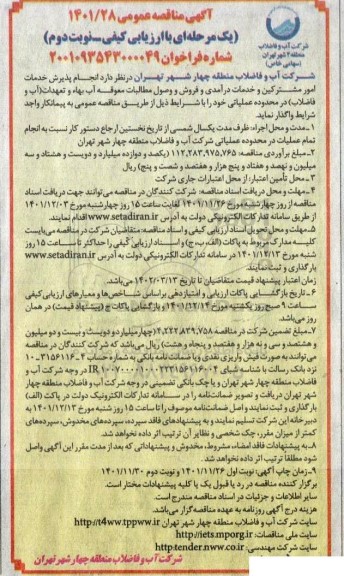 آگهی مناقصه عمومی ۱۴۰۱/۲۸
(یک مرحله‌ای با ارزیابی کیفی_نوبت دوم)
شماره فراخوان ۲۰۰۱۰۹۳۵۴۳۰۰۰۰۴۹
شرکت آب و فاضلاب
منطقه ۴ شهر تهران
(سهامی خاص)
شرکت آب و فاضلاب منطقه چهار شهر تهران در نظر دارد انجام پذیرش خدمات
امور مشترکین و خدمات درآمدی و فروش و وصول مطالبات معوقه آب بهاء و تعهدات (آب و
فاضلاب) در محدوده عملیاتی خود را با شرایط ذیل از طریق مناقصه عمومی به پیمانکار واجد
شرایط واگذار نماید.
۱_مدت و محل اجراء: ظرف مدت یکسال شمسی از تاریخ نخستین ارجاع دستور کار نسبت به انجام
تمام عملیات در محدوده عملیاتی شرکت آب و فاضلاب منطقه چهار شهر تهران
۲_مبلغ برآوردی مناقصه: ۱۱۲,۲۸۳,۹۷۵,۷۶۵ (یکصد و دوازده میلیارد و دویست و هشتاد و سه
میلیون و نهصد و هفتاد و پنج هزار و هفتصد و شصت و پنج) ریال
۳_محل تأمین اعتبار: از محل اعتبارات جاری شرکت
۴_مهلت و محل دریافت اسناد مناقصه: شرکت کنندگان در مناقصه می‌توانند جهت دریافت اسناد
مناقصه از روز چهارشنبه مورخ ۱۴۰۱/۱۱/۲۶ لغایت ساعت ۱۵ روز چهارشنبه مورخ ۱۴۰۱/۱۲/۰۳
از طریق سامانه تدارکات الکترونیکی دولت به آدرس www.setadiran.ir اقدام نمایند.
۵_مهلت و محل تحویل اسناد ارزیابی کیفی و اسناد مناقصه: متقاضیان شرکت در مناقصه می‌بایست
کلیه مدارک مربوط به پاکات (الف، ب، ج) و اسناد ارزیابی کیفی را حداکثر تا ساعت ۱۵ روز
شنبه مورخ ۱۴۰۱/۱۲/۱۳ در سامانه تدارکات الکترونیکی دولت به آدرس www.setadiran.ir
بارگذاری و ثبت نمایند.
زمان اعتبار پیشنهاد قیمت متقاضیان تا تاریخ ۱۴۰۲/۰۳/۱۳ می‌باشد.
۶_تاریخ بازگشایی پاکات ارزیابی و امتیازدهی براساس شاخص‌ها و معیارهای ارزیابی کیفی
ساعت ۹ صبح روز یکشنبه مورخ ۱۴۰۱/۱۲/۱۴ و بازگشایی پاکات ج (پیشنهاد قیمت) در همان
روز می‌باشد.
۷_مبلغ تضمین شرکت در مناقصه ۴,۲۲۲,۸۳۹,۷۵۸ (چهار میلیارد و دویست و بیست و دو میلیون
و هشتصد و سی و نه هزار و هفتصد و پنجاه و هشت) ریال می‌باشد که شرکت کنندگان در مناقصه
می‌توانند به صورت فیش واریزی نقدی و یا ضمانت نامه بانکی به شماره حساب
نزد بانک رسالت با شناسه شبای در وجه شرکت آب و
فاضلاب منطقه چهار شهر تهران و یا چک بانکی تضمینی در وجه شرکت آب و فاضلاب منطقه چهار
شهر تهران دریافت و تصویر ضمانت‌نامه را در سامانه تدارکات الکترونیک دولت در پاکت (الف)
بارگذاری و ثبت نمایند و اصل ضمانت‌نامه موصوف را تا ساعت ۱۵ روز شنبه مورخ ۱۴۰۱/۱۲/۱۳ به
دبیرخانه این شرکت تسلیم نمایند و به پیشنهادهای فاقد سپرده، سپرده‌های مخدوش، سپرده‌های
کمتر از میزان مقرر، چک شخصی و نظایر آن ترتیب اثر داده نخواهد شد.
۸_به پیشنهادات فاقد امضاء، مشروط، مخدوش و پیشنهاداتی که بعد از مدت مقرر این آگهی واصل
شود مطلقا ترتیب اثر داده نخواهد شد.
۹_زمان چاپ آگهی: نوبت اول ۱۴۰۱/۱۱/۲۶ و نوبت دوم ۱۴۰۱/۱۱/۳۰
برگزار کننده مناقصه در رد یا قبول یک یا کلیه پیشنهادات مختار است.
سایر اطلاعات و جزئیات در اسناد مناقصه مندرج است.
هزینه درج آگهی روزنامه به عهده مناقصه گزار می‌باشد.
سایت شرکت آب و فاضلاب منطقه چهار شهر تهران http://t4ww.tppww.ir
سایت ملی مناقصات: http://iets.mporg.ir
سایت شرکت مهندسی: http:tender.nww.co.ir
شرکت آب و فاضلاب منطقه چهار شهر تهران